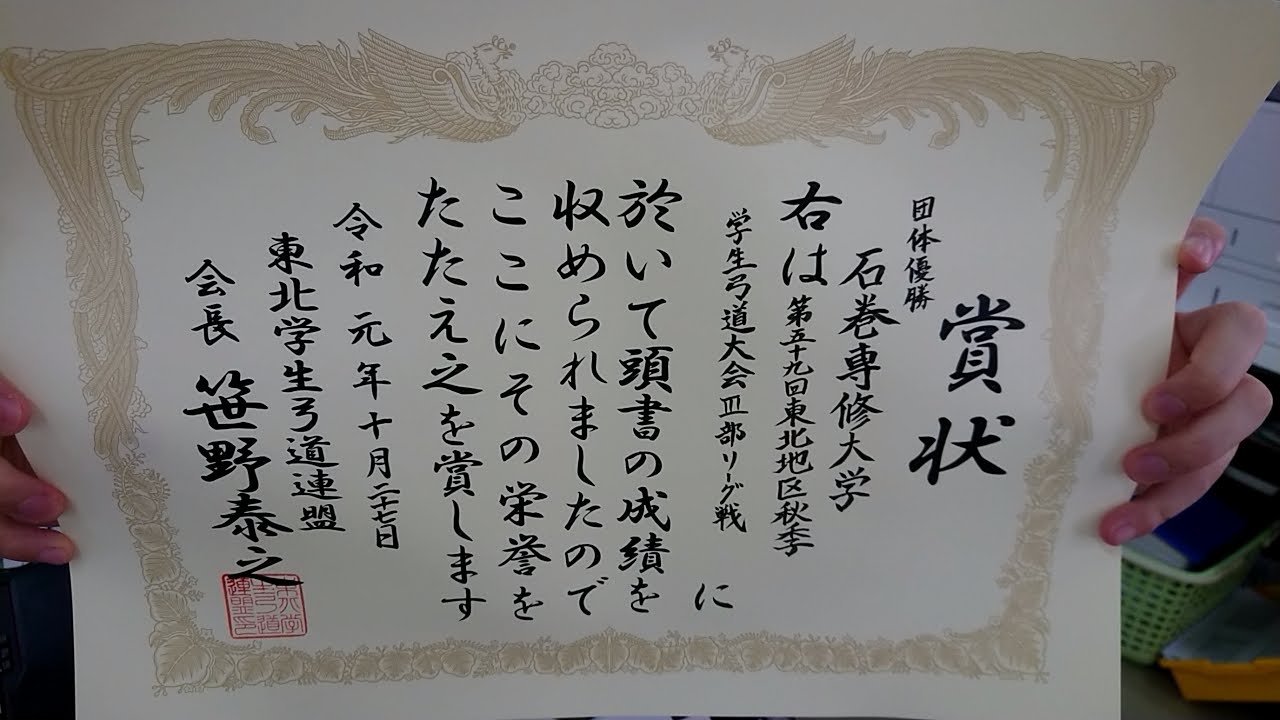 賞状
団体優勝
石巻専修大学
右は第五十九回東北地区秋季
学生弓道大会Ⅲ部リーグ戦に
於いて頭書の成績を
収められましたので
ここにその栄誉を
たたえ之を賞します
令和元年十月二十七日
東北学生弓道連盟
会長 笹野泰之
東北学生弓道連盟印